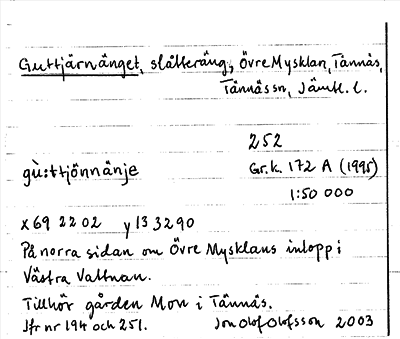 Guttjärnänget, slåtteräng, Övre Mysklan, Tännäs,
Tännäs sn, Jämtl. l.
252
gù:ttjönnänje
Gr.k. 172 A (1995)
1:50 000
x 69 22 02 y 13 32 90
På norra sidan om Övre Mysklans inlopp i
Västra Valtnan.
Tillhör gården Mon i Tännäs.
Jfr nr 194 och 251. Jon Olof Olofsson 2003